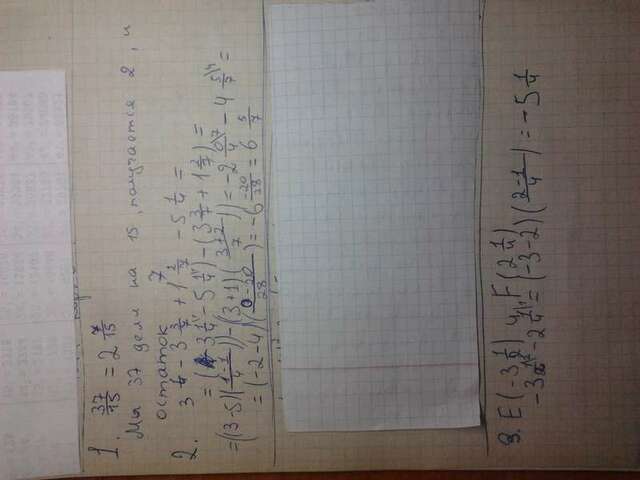 1. 37/15 = 2 7/15
Мы 37 делим на 15, получается 2, и
остаток 7
2. 3 1/4 - 3 3/7 + 1 2/7 - 5 1/4 =
= (3 1/4 - 5 1/4) - (3 3/7 + 1 2/7) =
= (3-5)(1-1/4) - (3+1)(3+2/7) = -2 0/4 - 4 5/7 =
= (-2-4)(0-20/28) = -6 -20/28 = 6 5/7
3. E(-3 1/2) и F(2 1/4)
-3 1/2 - 2 1/4 = (-3-2)(2-1/4) = -5 1/4